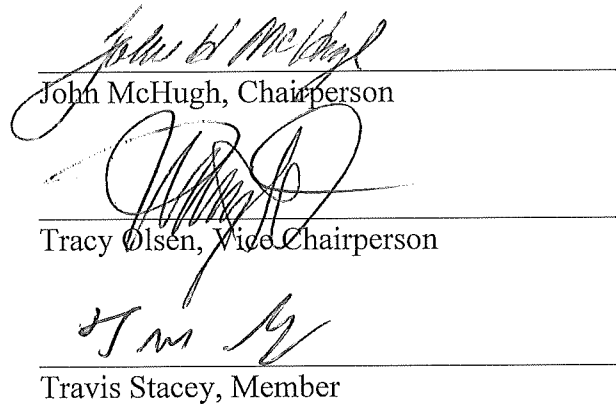 John W McHugh
John McHugh, Chairperson
Tracy Olsen, Vice Chairperson
Travis Stacey, Member